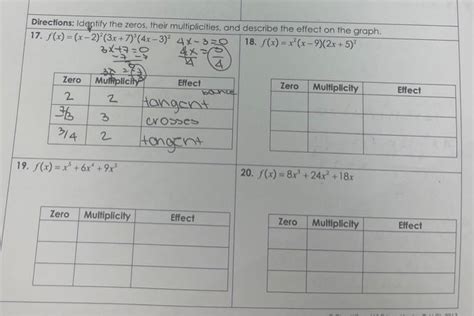 Directions: Identify the zeros, their multiplicities, and describe the effect on the graph.
17. f(x) = (x − 2)²(3x + 7)³(4x − 3)²
4x − 3 = 0
3x + 7 = 0
−7 −7
4x = 3
4 4
Zero Multiplicity Effect
bounce
2 2 tangent
3 crosses
3/4 2 tangent
18. f(x) = x²(x − 9)(2x + 5)³
Zero Multiplicity Effect
19. f(x) = x⁵ + 6x⁴ + 9x³
Zero Multiplicity Effect
20. f(x) = 8x³ + 24x² + 18x
Zero Multiplicity Effect